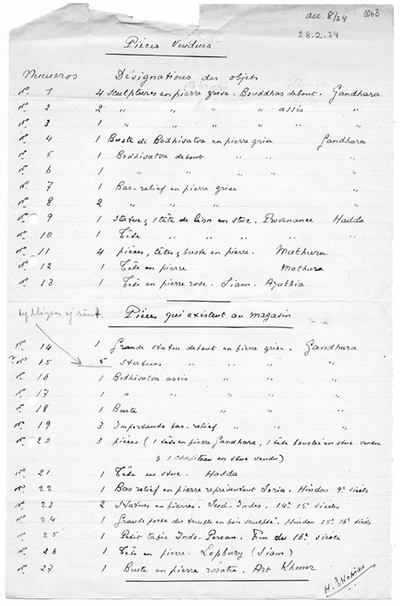 acc. 8/24 0063
28.2.24
Pièces Vendues
Numeros Désignations des objets
No 1 4 sculptures en pierre grise. Bouddhas debout. Gandhara
No 2 2 " " " " assis "
No 3 1 " " " " "
No 4 1 Buste de Bodhisatva en pierre grise Gandhara
No 5 1 Bodhisatva debout " " "
No 6 1 " " " " "
No 7 1 Bas-relief en pierre grise "
No 8 2 " " " "
No 9 1 statue, 1 tête de lion en stuc. Provenance Hadda
No 10 1 Tête " " " "
No 11 4 pièces, têtes, buste en pierre. Mathura
No 12 1 Tête en pierre Mathura
No 13 1 Tête en pierre rose. Siam. Ayuthia
Pièces qui existent au magasin
No 14 1 Grande statue debout en pierre grise. Gandhara
No 15 5 Statues " " " "
No 16 1 Bodhisatva assis " " "
No 17 1 " " " " "
No 18 1 Buste " " "
No 19 3 Importants bas-relief " "
No 20 3 pièces (1 tête en pierre Gandhara, 1 tête bouclée en stuc vendu
& 1 chapiteau en stuc vendu)
No 21 1 Tête en stuc. Hadda
No 22 1 Bas relief en pierre représentant Soria. Hindou 9e siècle
No 23 2 Statues en pierres. Sud-Indes. 14e 15e siècles
No 24 1 Grande porte de temple en bois sculpté. Hindou 15e 16e siècle
No 25 1 Petit tapis Indo-Persan. Fin du 16e siècle
No 26 1 Tête en pierre. Lopbury (Siam)
No 27 1 Buste en pierre rosâtre. Art Khmer